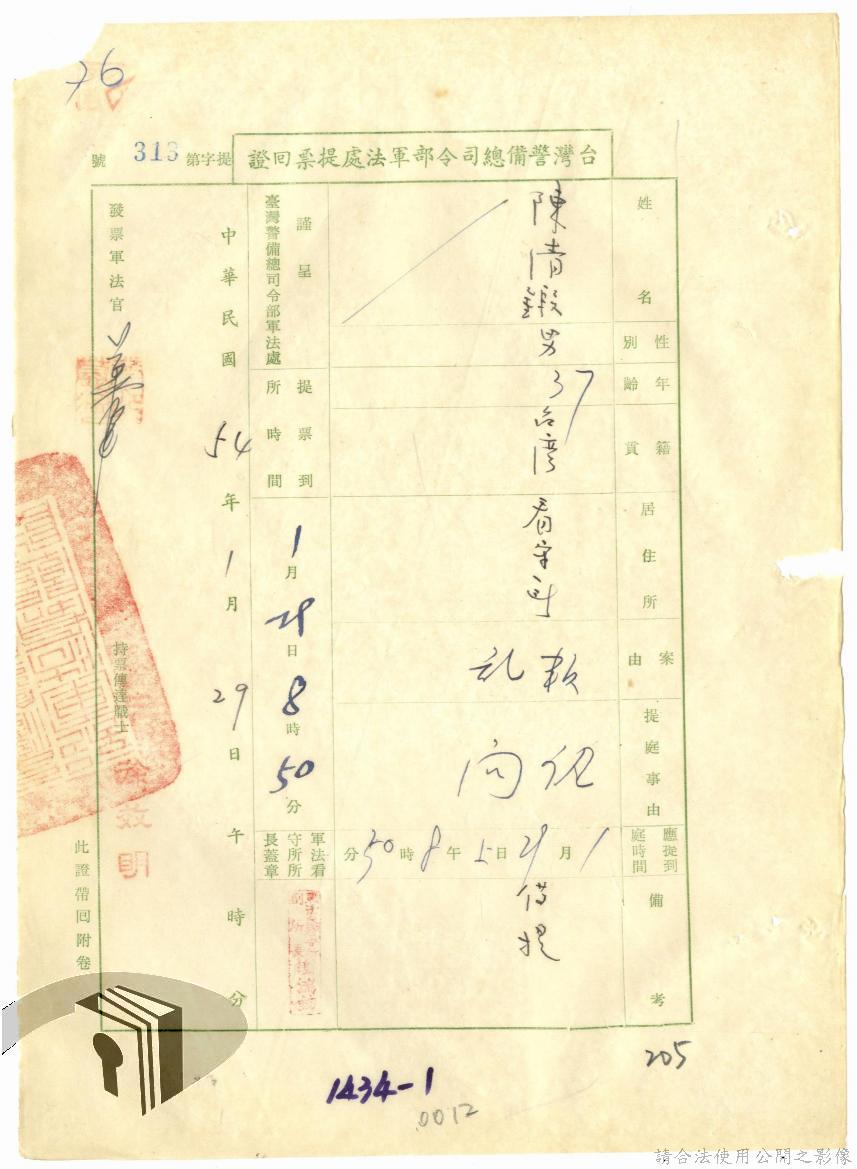 76
台灣警備總司令部軍法處提票回證
提字第313號
姓名 陳清鍛
性別 男
年齡 37
籍貫 台灣
居住所 看守所
案由 叛亂
提庭事由
應提到庭時間 1月29日上午8時50分
備考 借提
謹呈
臺灣警備總司令部軍法處
提票到所時間 1月29日8時50分
軍法看守所所長蓋章
中華民國54年1月29日午時分
發票軍法官
持票傳達職士
明
此證帶回附卷
205
1434-1
0012
請合法使用公開之影像